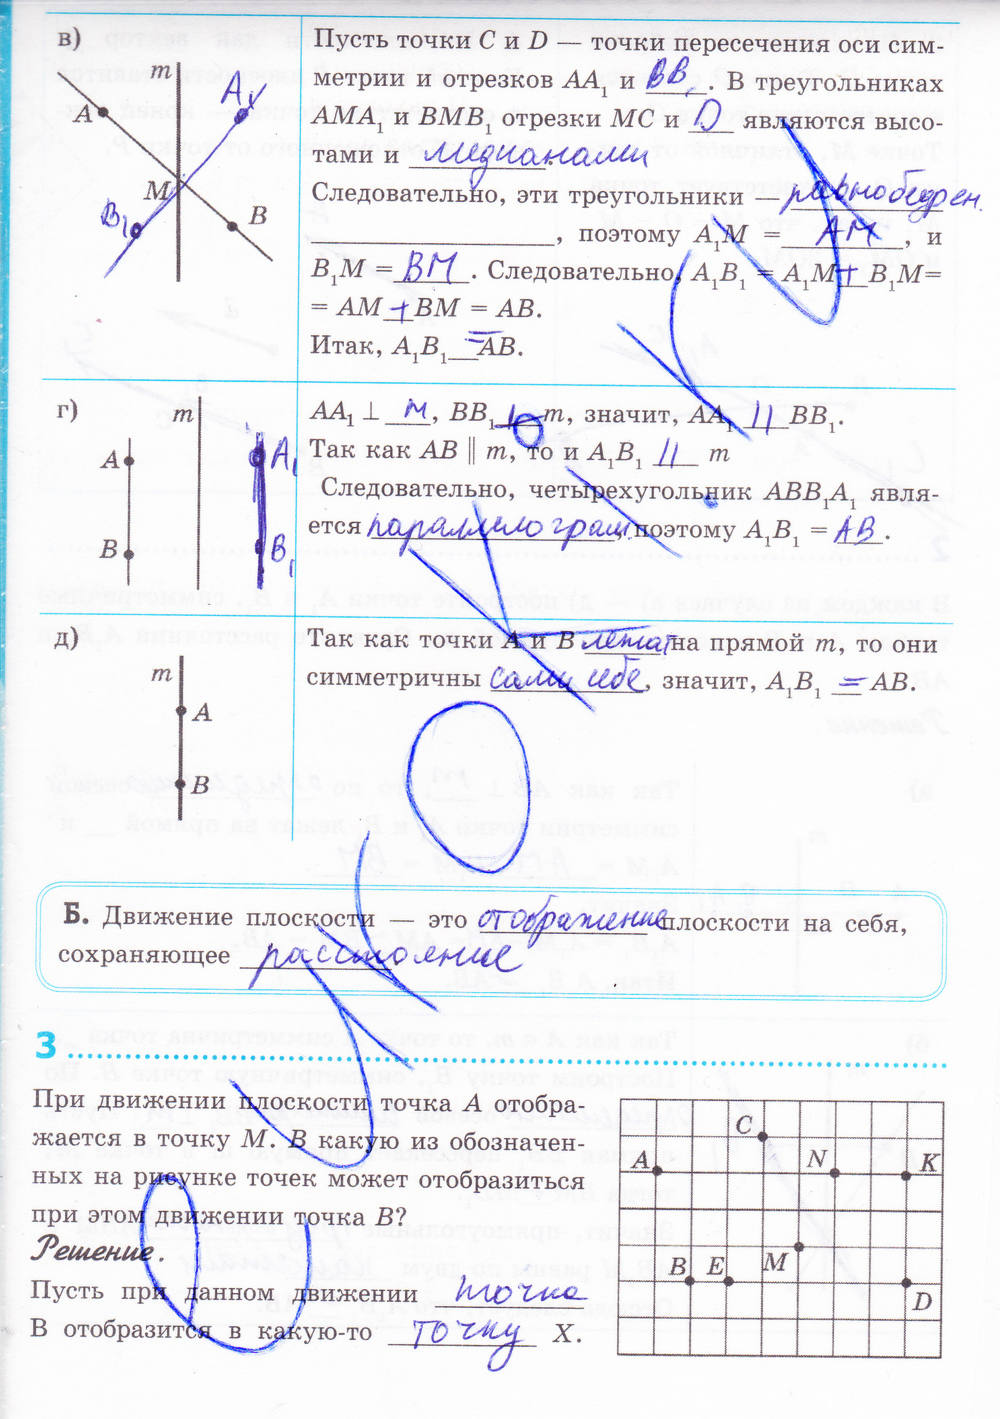 в)
m
A
A₁
M
B₁
B
Пусть точки C и D — точки пересечения оси сим-
метрии и отрезков AA₁ и BB₁. В треугольниках
AMA₁ и BMB₁ отрезки MC и D являются высо-
тами и медианами
Следовательно, эти треугольники — равнобедрен.
, поэтому A₁M = AM, и
B₁M = BM. Следовательно, A₁B₁ = A₁M + B₁M =
= AM + BM = AB.
Итак, A₁B₁ = AB.
г)
m
A
A₁
B
B₁
AA₁ ⊥ m, BB₁ ⊥ m, значит, AA₁ || BB₁.
Так как AB || m, то и A₁B₁ || m
Следовательно, четырехугольник ABB₁A₁ явля-
ется параллелограм, поэтому A₁B₁ = AB.
д)
m
A
B
Так как точки A и B лежат на прямой m, то они
симметричны сами себе, значит, A₁B₁ = AB.
Б. Движение плоскости — это отображение плоскости на себя,
сохраняющее расстояние
3
При движении плоскости точка A отобра-
жается в точку M. В какую из обозначен-
ных на рисунке точек может отобразиться
при этом движении точка B?
Решение.
Пусть при данном движении точка
B отобразится в какую-то точку X.
C
A
N
K
M
B
E
D